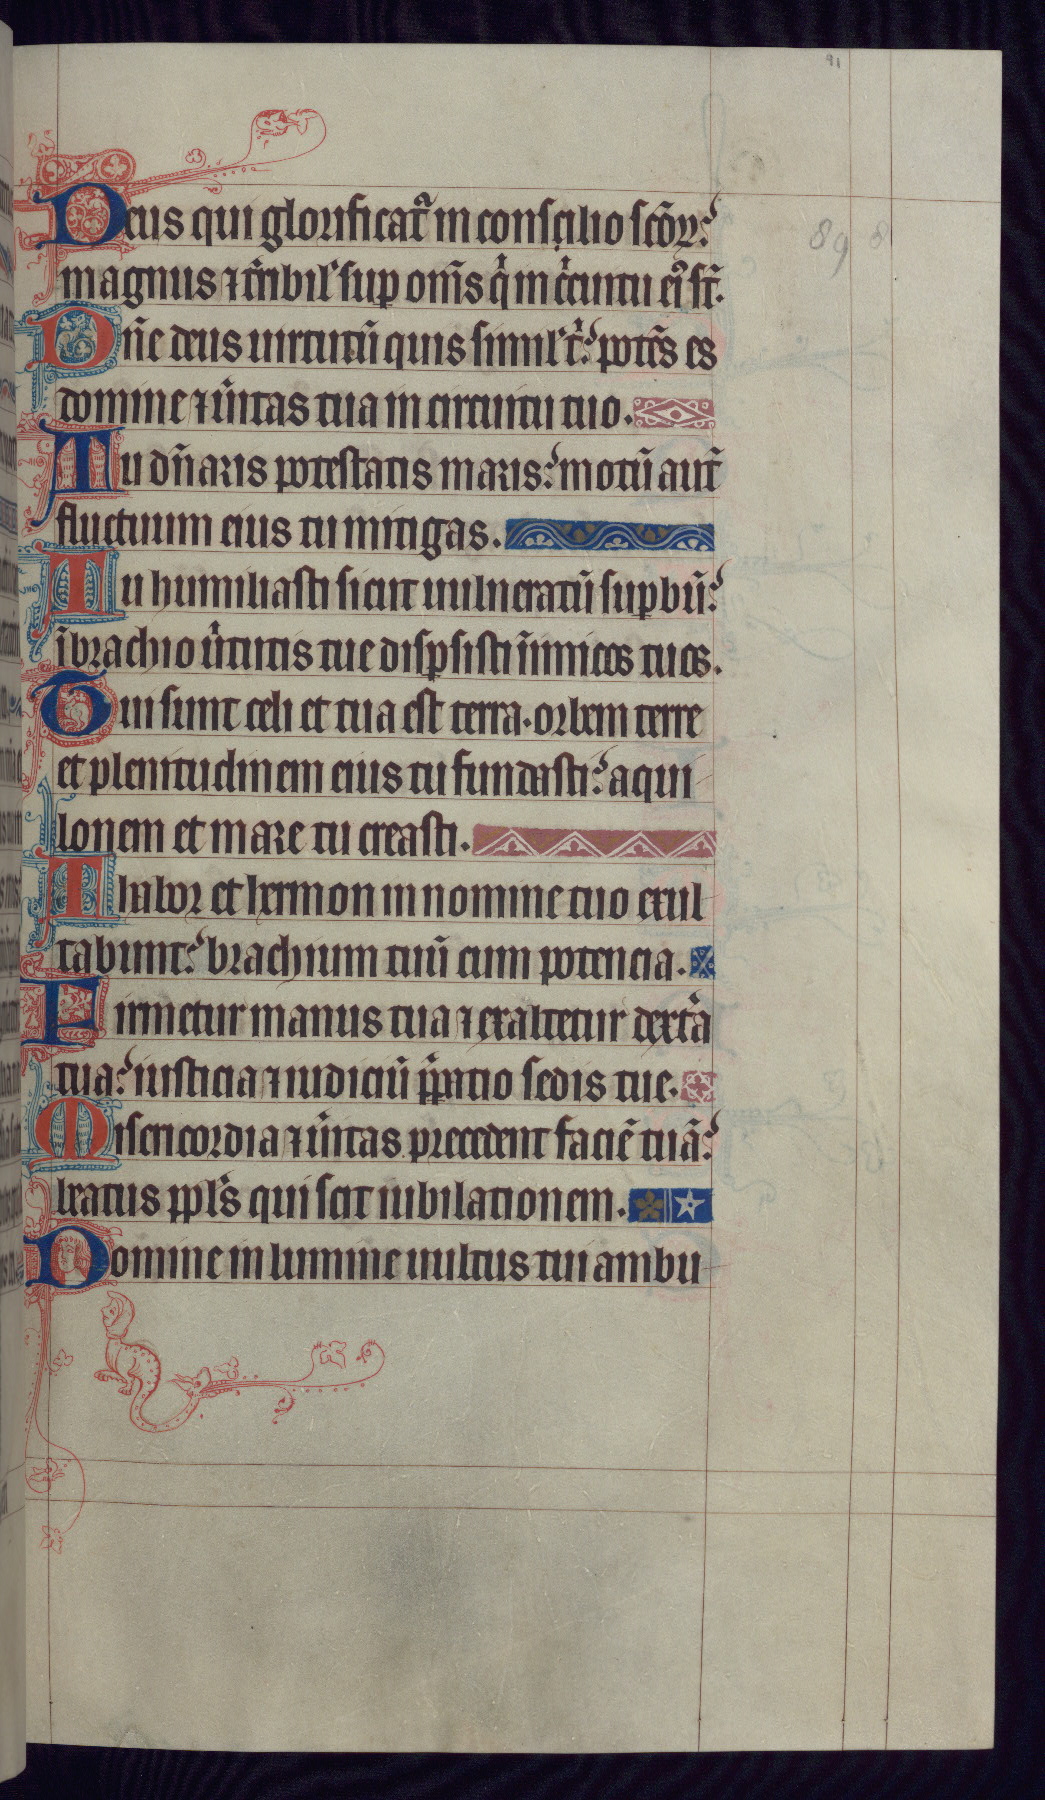 91
89 8
Deus qui glorificat᷑ in conscilio sc̄oꝝ:
magnus ⁊ t᷑ribil' sup om̄s q͛ in c͛cuitu ei᷒ st̄.
Dn̄e deus uirtutū quis simil' t͛: potēs es
domine ⁊ u͛itas tua in circuitu tuo.
Tu dn̄aris potestatis maris: motū aut̄
fluctuum eius tu mitigas.
Tu humiliasti sicut uulneratū supbū:
ī brachio u͛tutis tue dispsisti īnimicos tuos.
Tui sunt celi et tua est terra. orbem terre
et plenitudinem eius tu fundasti: aqui
lonem et mare tu creasti.
Thabor et hermon in nomine tuo exul
tabunt: brachium tuū cum potencia.
Firmetur manus tua ⁊ exaltetur dext͛a
tua: iusticia ⁊ iudiciū p̄patio sedis tue.
Misericordia ⁊ u͛itas precedent faciē tuā:
beatus ppl's qui scit iubilationem.
Domine in lumine uultus tui ambu